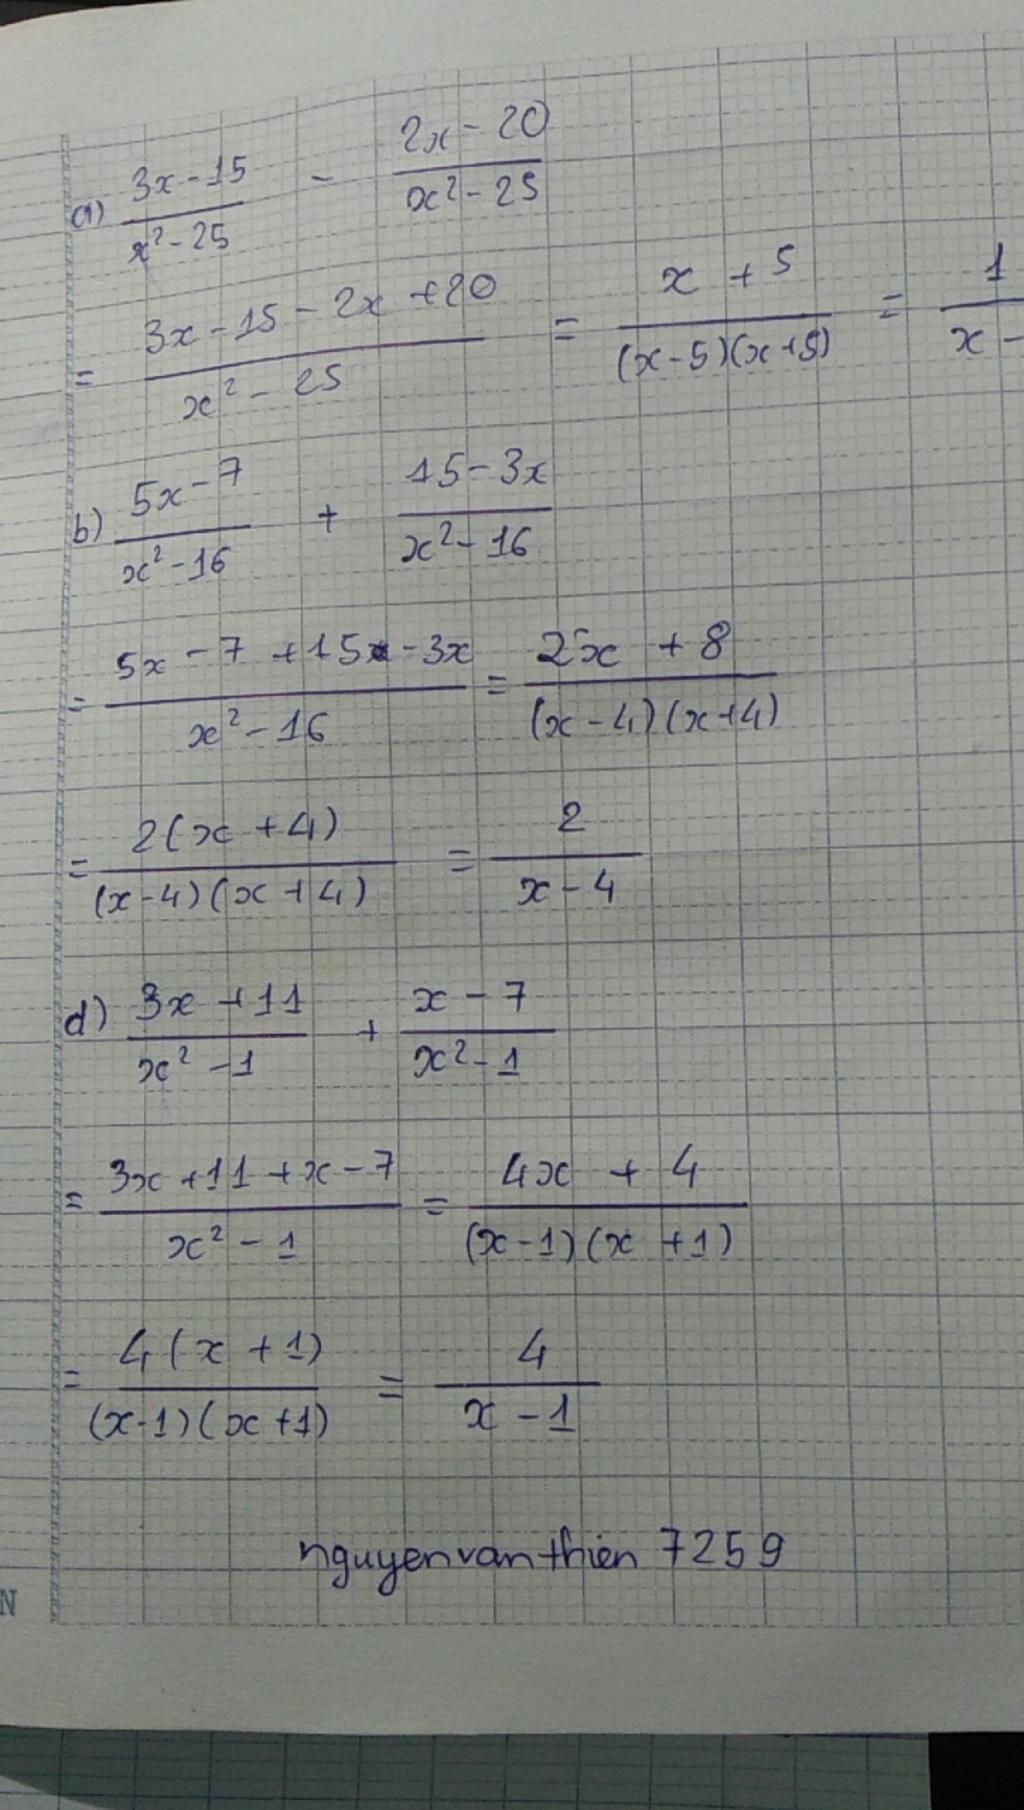 a) (3x-15)/(x²-25) - (2x-20)/(x²-25)
= (3x-15-2x+20)/(x²-25) = (x+5)/((x-5)(x+5)) = 1/(x-
b) (5x-7)/(x²-16) + (15-3x)/(x²-16)
= (5x-7+15-3x)/(x²-16) = (2x+8)/((x-4)(x+4))
= 2(x+4)/((x-4)(x+4)) = 2/(x-4)
d) (3x+11)/(x²-1) + (x-7)/(x²-1)
= (3x+11+x-7)/(x²-1) = (4x+4)/((x-1)(x+1))
= 4(x+1)/((x-1)(x+1)) = 4/(x-1)
nguyenvanthien 7259
N